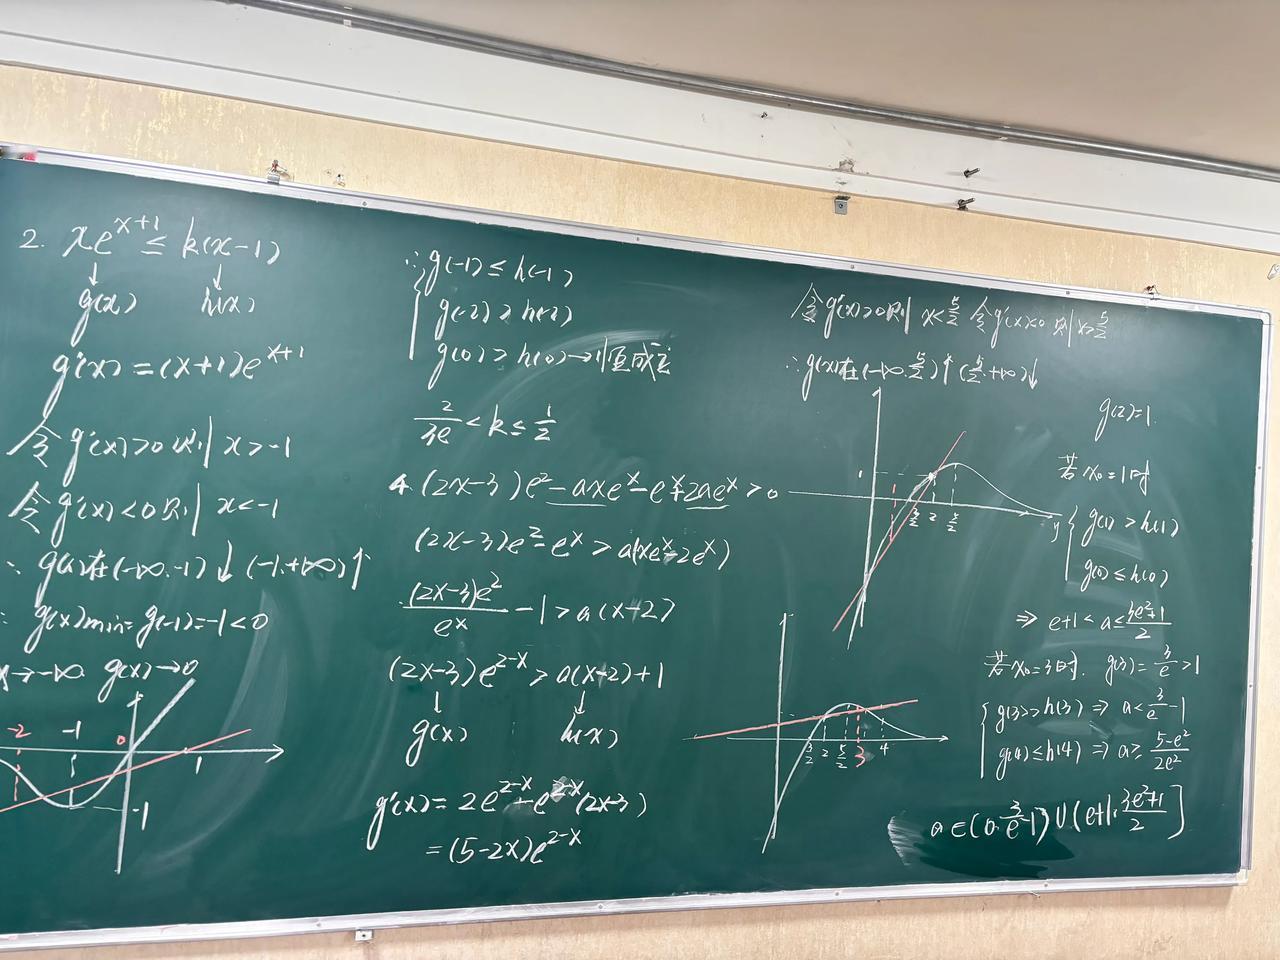 2. xe^{x+1} ≤ k(x-1)
↓ ↓
g(x) h(x)
g'(x)=(x+1)e^{x+1}
令 g'(x)>0 则 x>-1
令 g'(x)<0 则 x<-1
∴ g(x)在(-∞.-1)↓ (-1.+∞)↑
g(x)min=g(-1)=-1<0
x→-∞ g(x)→0
-2 -1 0 1
-1
∴ { g(-1)≤h(-1)
g(-2)>h(-2)
g(0)>h(0)→恒成立
2/3e < k ≤ 1/2
4. (2x-3)e²-axe^x-e^x+2ae^x>0
(2x-3)e²-e^x>a(xe^x-2e^x)
(2x-3)e²/e^x -1>a(x-2)
(2x-3)e^{2-x}>a(x-2)+1
↓ ↓
g(x) h(x)
g'(x)=2e^{2-x}-e^{2-x}(2x-3)
=(5-2x)e^{2-x}
令 g'(x)>0 则 x<5/2 令 g'(x)<0 则 x>5/2
∴ g(x)在(-∞.5/2)↑(5/2.+∞)↓
1 3/2 2 5/2
g(2)=1.
若 x₀=1时
{ g(1)>h(1)
g(0)≤h(0)
⇒ e+1<a≤(3e²+1)/2
3/2 2 5/2 3 4
若 x₀=3时. g(3)=3/e>1
{ g(3)>h(3) ⇒ a<3/e-1
g(4)≤h(4) ⇒ a≥(5-e²)/2e²
a∈(0.3/e-1)∪(e+1.(3e²+1)/2]